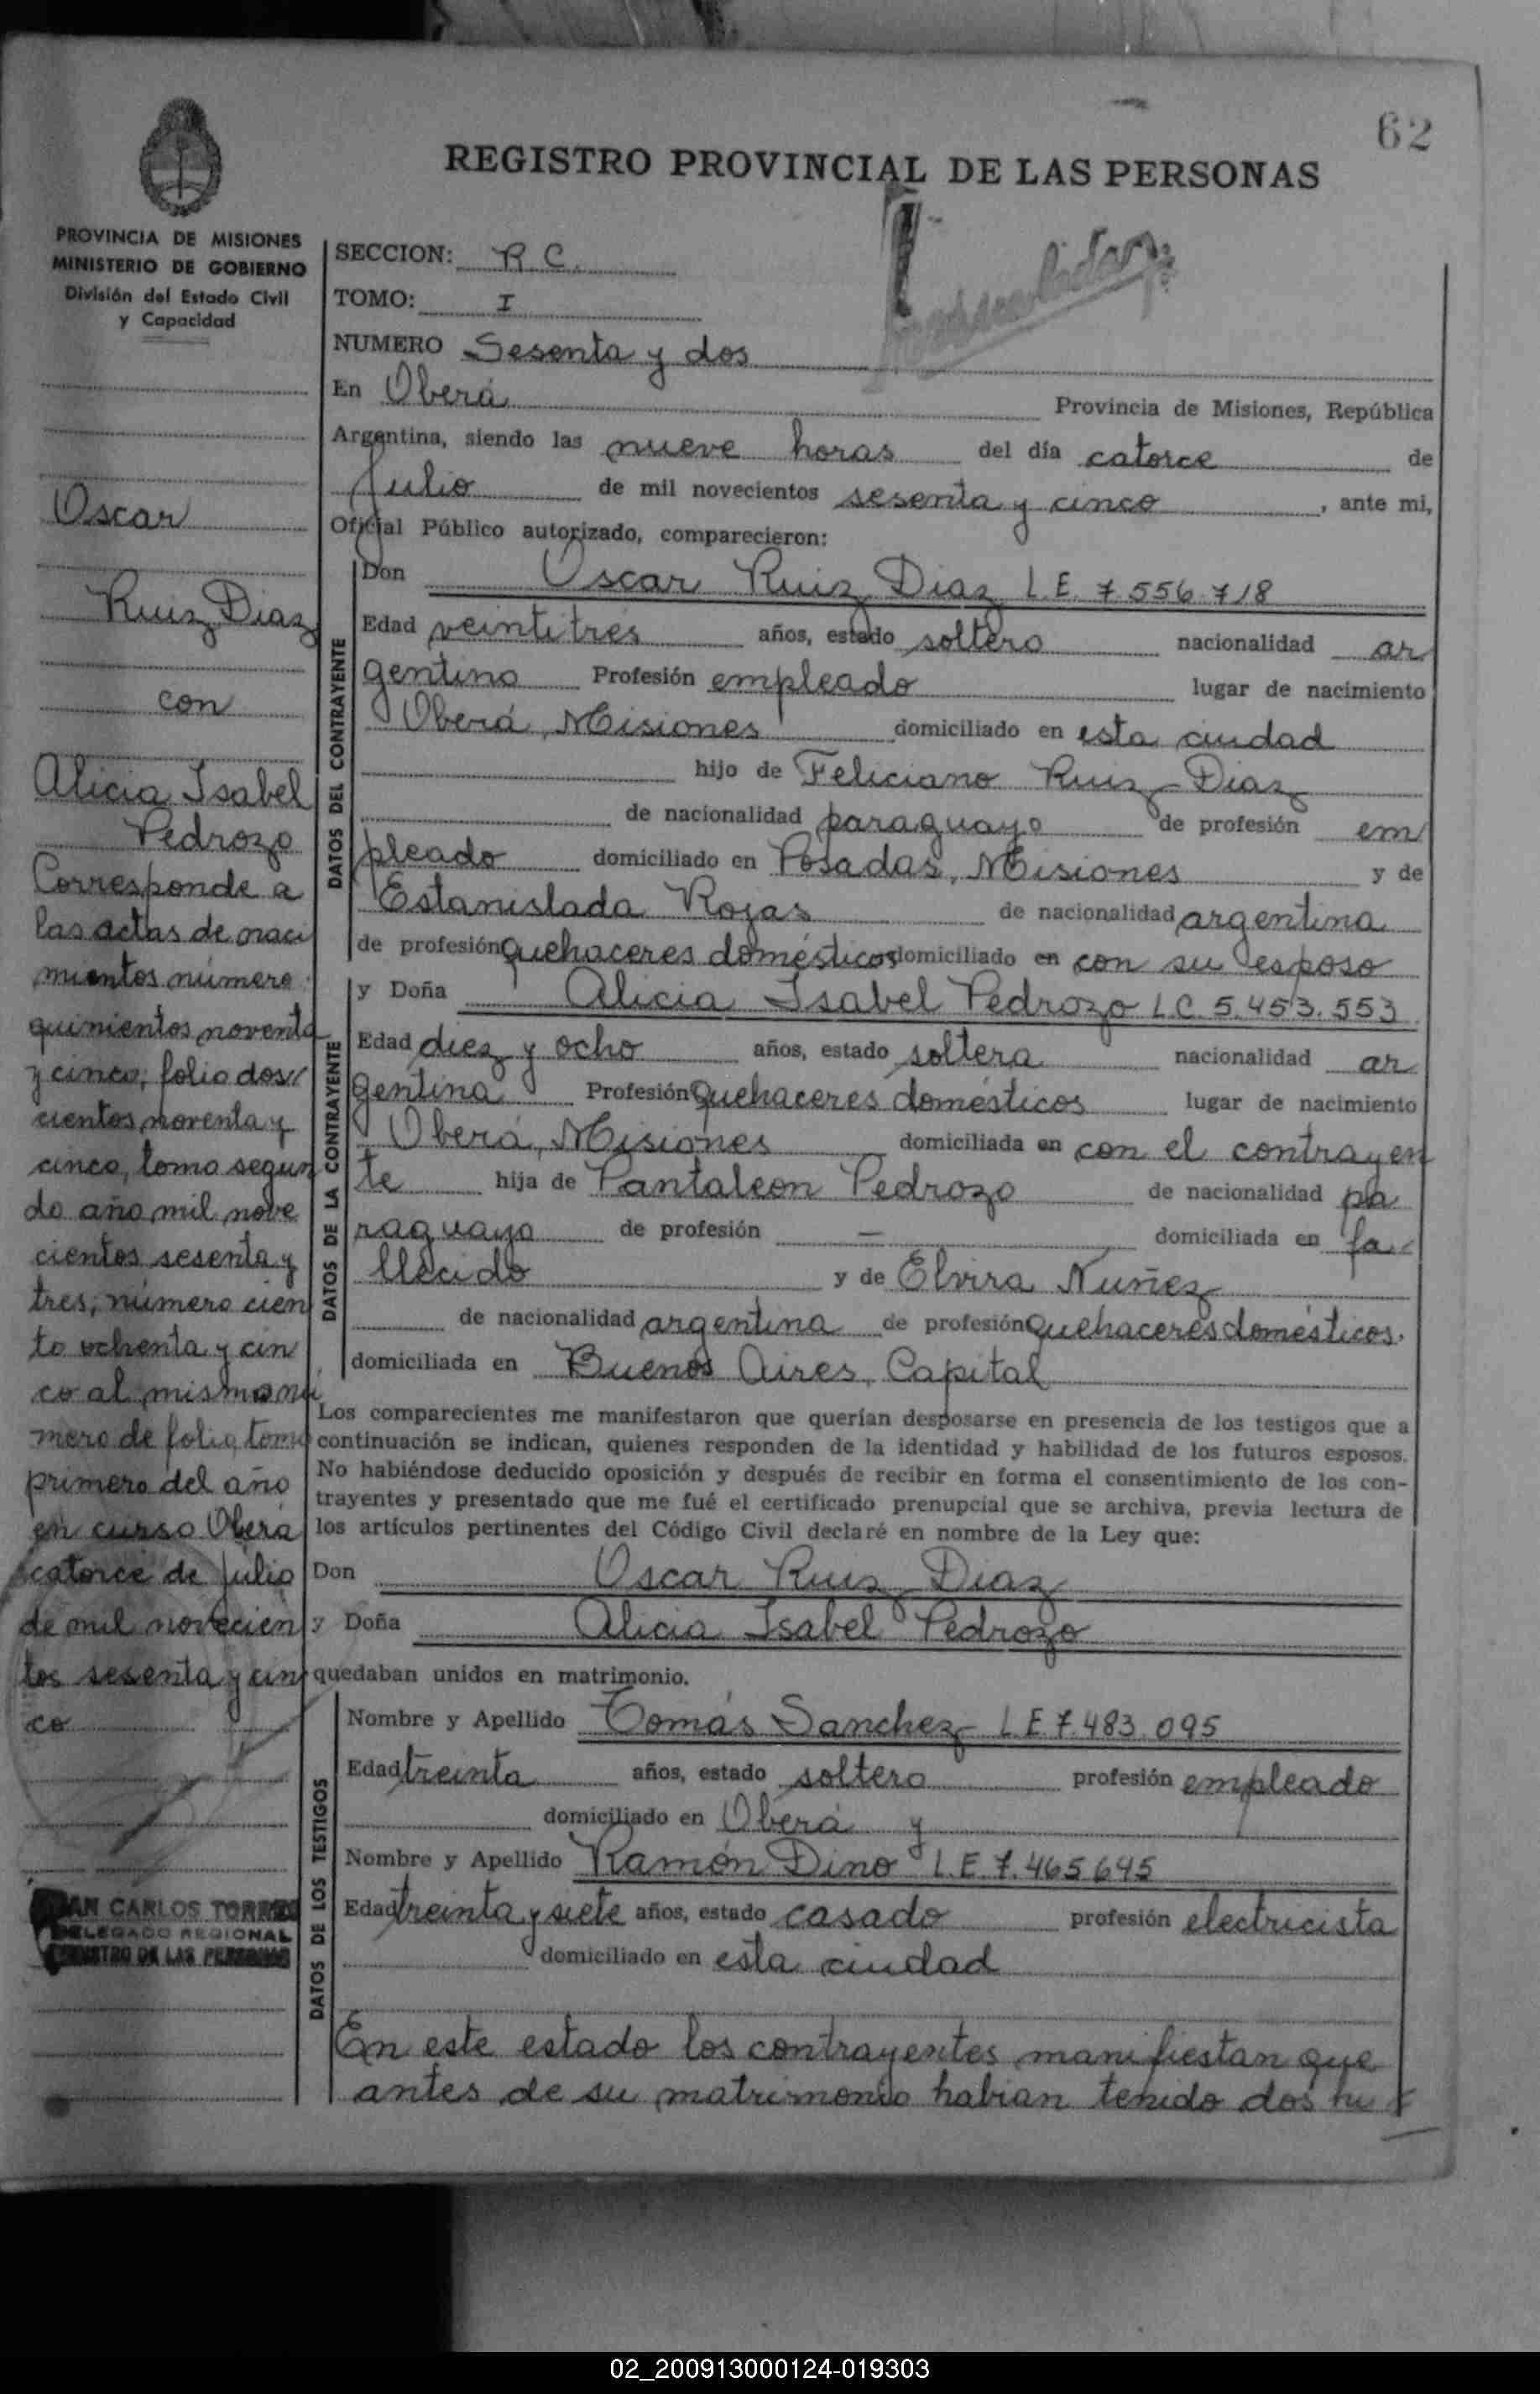 62
REGISTRO PROVINCIAL DE LAS PERSONAS
PROVINCIA DE MISIONES
MINISTERIO DE GOBIERNO
División del Estado Civil
y Capacidad
Oscar
Ruiz Diaz
con
Alicia Isabel
Pedrozo
Corresponde a
las actas de naci
mientos número
quinientos noventa
y cinco, folio dos
cientos noventa y
cinco, tomo segun
do año mil nove
cientos sesenta y
tres, número cien
to ochenta y cin
co al mismo nú
mero de folio, tomo
primero del año
en curso Oberá
catorce de julio
de mil novecien
tos sesenta y cin
co
CARLOS TORRES
DELEGADO REGIONAL
REGISTRO DE LAS PERSONAS
SECCION: R C.
TOMO: I
NUMERO Sesenta y dos
En Oberá Provincia de Misiones, República
Argentina, siendo las nueve horas del día catorce de
Julio de mil novecientos sesenta y cinco, ante mi,
Oficial Público autorizado, comparecieron:
DATOS DEL CONTRAYENTE
Don Oscar Ruiz Diaz L.E. 7.556.718
Edad veintitres años, estado soltero nacionalidad ar
gentino Profesión empleado lugar de nacimiento
Oberá, Misiones domiciliado en esta ciudad
hijo de Feliciano Ruiz Diaz
de nacionalidad paraguayo de profesión em
pleado domiciliado en Posadas, Misiones y de
Estanislada Rojas de nacionalidad argentina
de profesión quehaceres domésticos domiciliado en con su esposo
DATOS DE LA CONTRAYENTE
y Doña Alicia Isabel Pedrozo L.C. 5.453.553
Edad diez y ocho años, estado soltera nacionalidad ar
gentina Profesión quehaceres domésticos lugar de nacimiento
Oberá, Misiones domiciliada en con el contrayen
te hija de Pantaleon Pedrozo de nacionalidad pa
raguayo de profesión — domiciliada en fa
llecido y de Elvira Nuñez
de nacionalidad argentina de profesión quehaceres domésticos.
domiciliada en Buenos Aires, Capital
Los comparecientes me manifestaron que querían desposarse en presencia de los testigos que a
continuación se indican, quienes responden de la identidad y habilidad de los futuros esposos.
No habiéndose deducido oposición y después de recibir en forma el consentimiento de los con-
trayentes y presentado que me fué el certificado prenupcial que se archiva, previa lectura de
los artículos pertinentes del Código Civil declaré en nombre de la Ley que:
Don Oscar Ruiz Diaz
y Doña Alicia Isabel Pedrozo
quedaban unidos en matrimonio.
DATOS DE LOS TESTIGOS
Nombre y Apellido Tomás Sanchez L.E 7.483.095
Edad treinta años, estado soltero profesión empleado
domiciliado en Oberá y
Nombre y Apellido Ramón Dino L.E 7.465645
Edad treinta y siete años, estado casado profesión electricista
domiciliado en esta ciudad
En este estado los contrayentes manifiestan que
antes de su matrimonio habian tenido dos hi
02_200913000124-019303